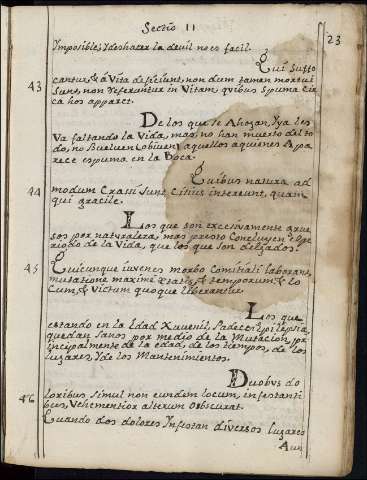 Sectio II
23
Ymposible; y deshacer la devil no es facil.
Qui suffo
43
cantur, & a Vita deficiunt, non dum tamen mortui
sunt, non referuntur in Vitam, quibus spuma cir
ca hos apparet.
De los que se Ahogan, y ya les
va faltando la Vida, mas no han muerto del to
do, no Buelven aquellos aquienes Apa
rece espuma en la Boca.
Quibus natura ad
44
modum Crassi sunt, Citius intereunt, quam
qui gracile.
Los que son excesivamente grue
sos por naturaleza, mas presto Concluyen el pe
riodo de la Vida, que los que son delgados.
45
Quicunque iuvenes morbo Comitiali laborant,
mutatione maxime ætatis, & temporum, & lo
cum, & Victum quoque liberantur.
Los que
estando en la Edad Xuvenil, Padecen epilepsia,
quedan Sanos por medio de la Mutacion, prin
cipalmente de la edad, de los tiempos, de los
lugares, y de los Mantenimientos.
Duobus do
46
loribus simul non eundem locum, infestanti
bus, Vehementior alterum Obscurat.
Quando dos dolores Infestan diversos lugares
Aun